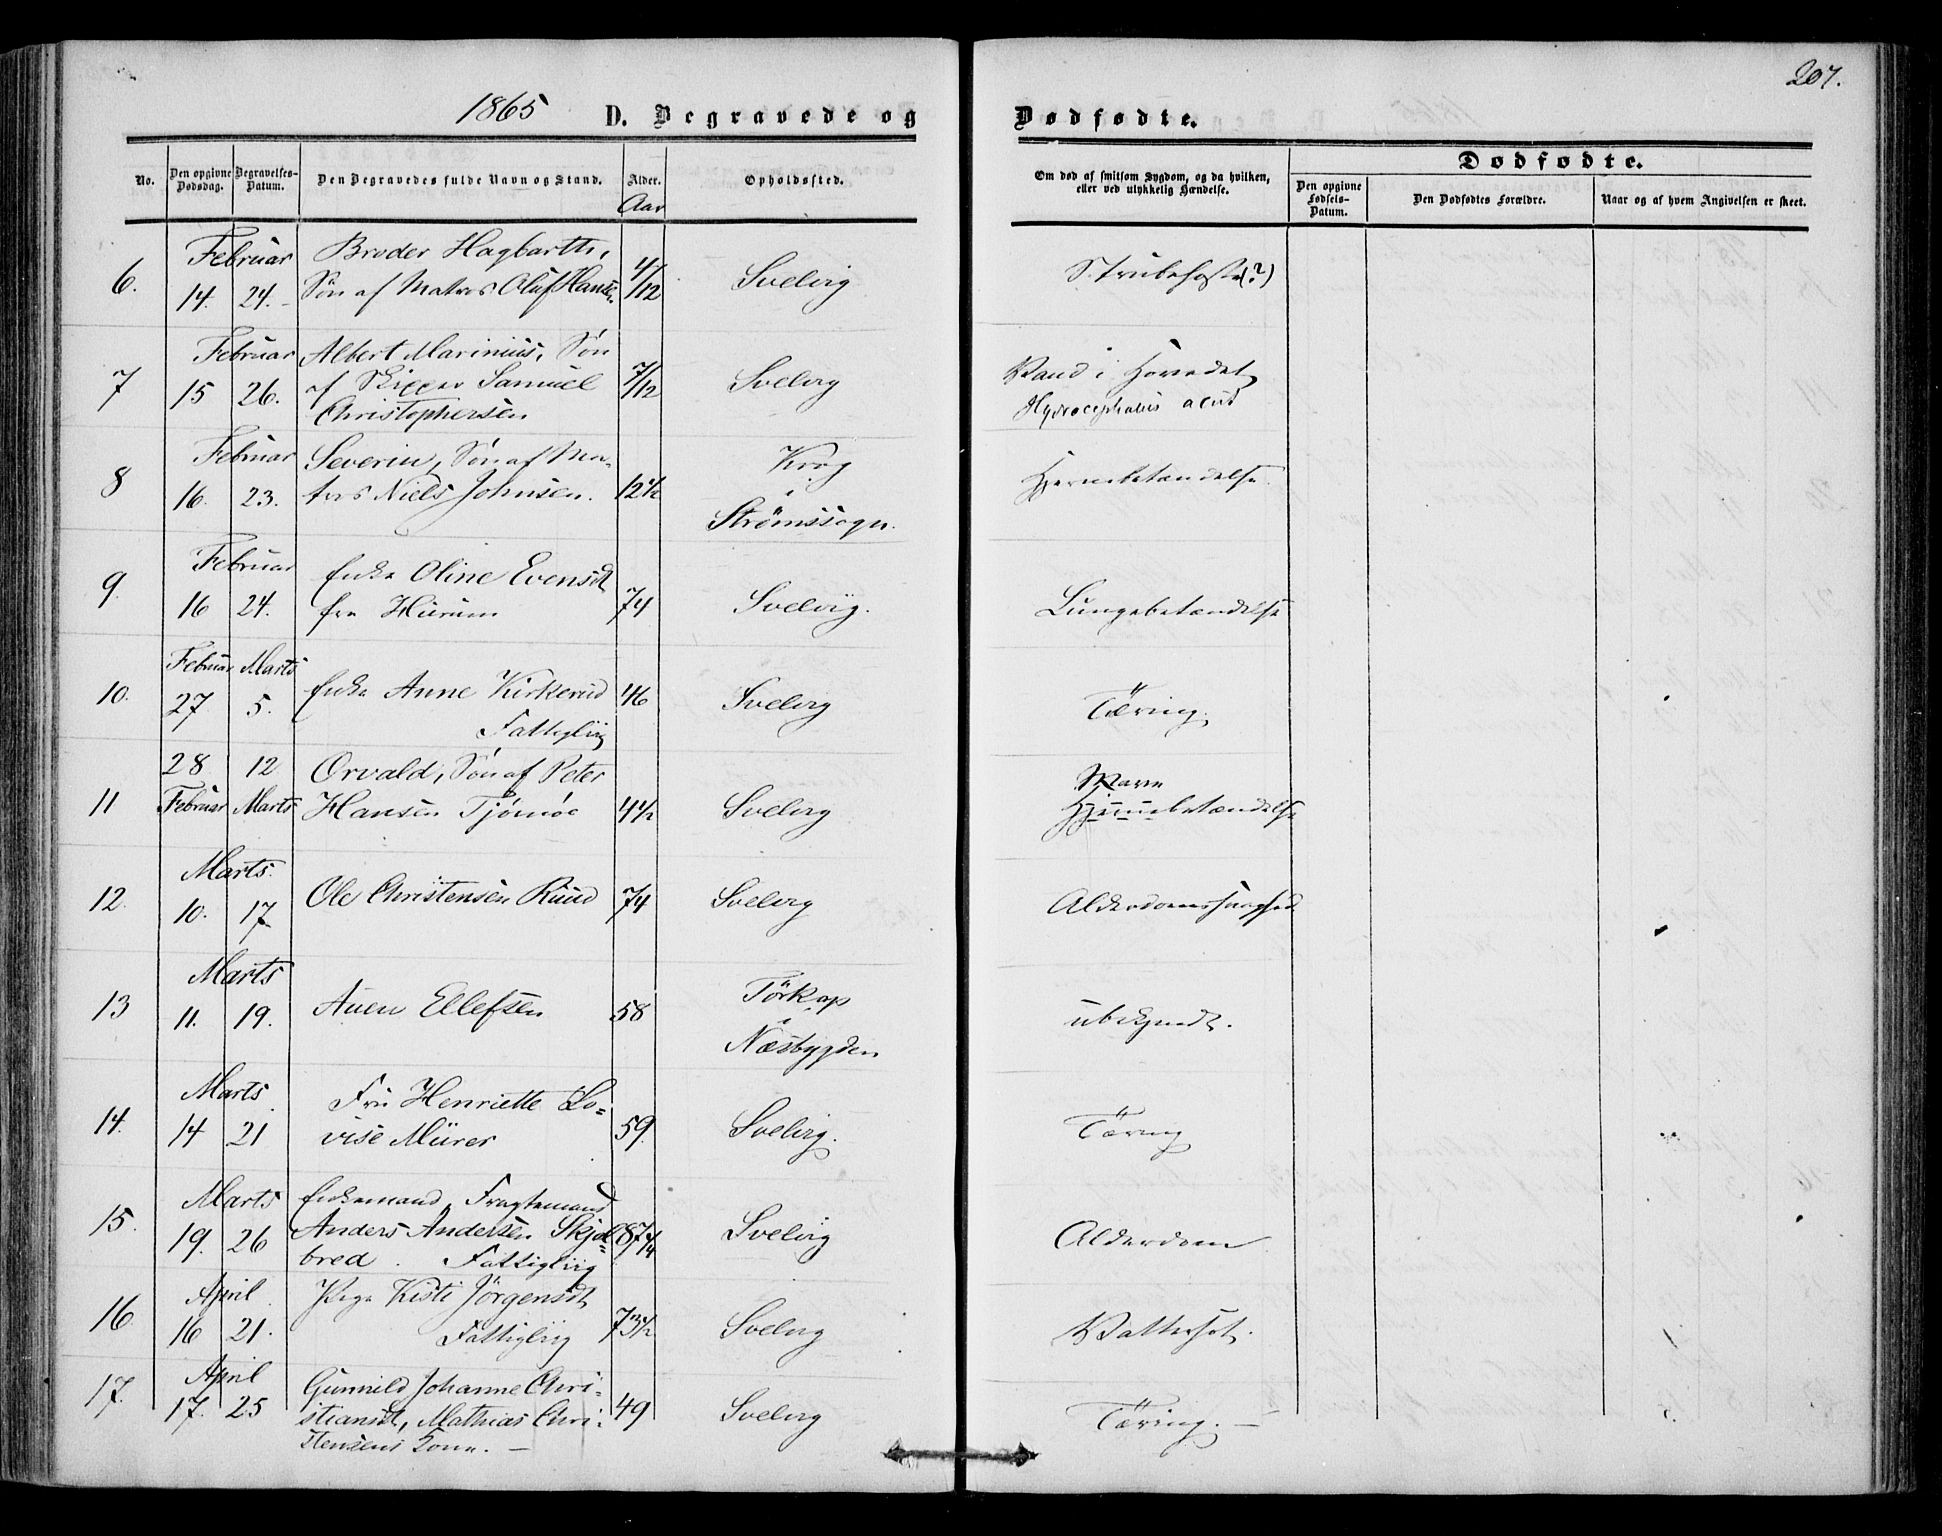 207.
1865 D. Begravede og Dødfødte.
No. Den opgivne Dødsdag. Begravelses-Datum. Den Begravedes fulde Navn og Stand. Alder. Opholdssted. Om død af smitsom Sygdom, og da hvilken, eller ved ulykkelig Hændelse.
Dødfødte.
Den opgivne Fødsels-Datum. Den Dødfødtes Forældre. Naar og af hvem Angivelsen er skeet.
Aar
Februar Broder Hagbarth,
6. 14. 24. Søn af Matros Oluf Hansen 4/12 Svelvig Strubehoste(?)
Februar Albert Marinius, Søn
7 15 26. af Skipper Samuel 7/12 Svelvig Vand i Hovedet
Christophersen Hydrocephalus acut
Februar Severin, Søn af Ma- Krog
8 16. 23. tros Niels Johnsen. 12½ i Hjernebetændelse.
Strømssogn.
Februar Enke Oline Evensdt
9. 16 24. fra Hurum 74 Svelvig. Lungebetændelse
Februar Marts
10. 27 5. Enke Anne Kirkerud 46 Svelvig Tæring.
Fattiglig
28 12 Orvald, Søn af Peter Mave
11 Februar Marts Hansen Tjømøe 4½ Svelvig Hjernebetændelse
Marts.
12. 10. 17 Ole Christensen Ruud 74 Svelvig Alderdomssvaghed
Marts Tørkop
13 11. 19. Auen Ellefsen 58 i ubekjendt.
Næsbygden
Marts Fru Henriette Lo-
14. 14 21 vise Mürer 59. Svelvig. Tæring
Marts Enkemand, Fragtemand
15. 19. 26 Anders Andersen Skjel- 87¼ Svelvig Alderdom
bred. Fattiglig
April Pige Kisti Jörgensdt
16 16 21. Fattiglig 73½ Svelvig Vattersot.
April Gunnild Johanne Chri-
17. 17. 25 stiansdt, Mathias Chri- 49 Svelvig Tæring.
stensens Kone.